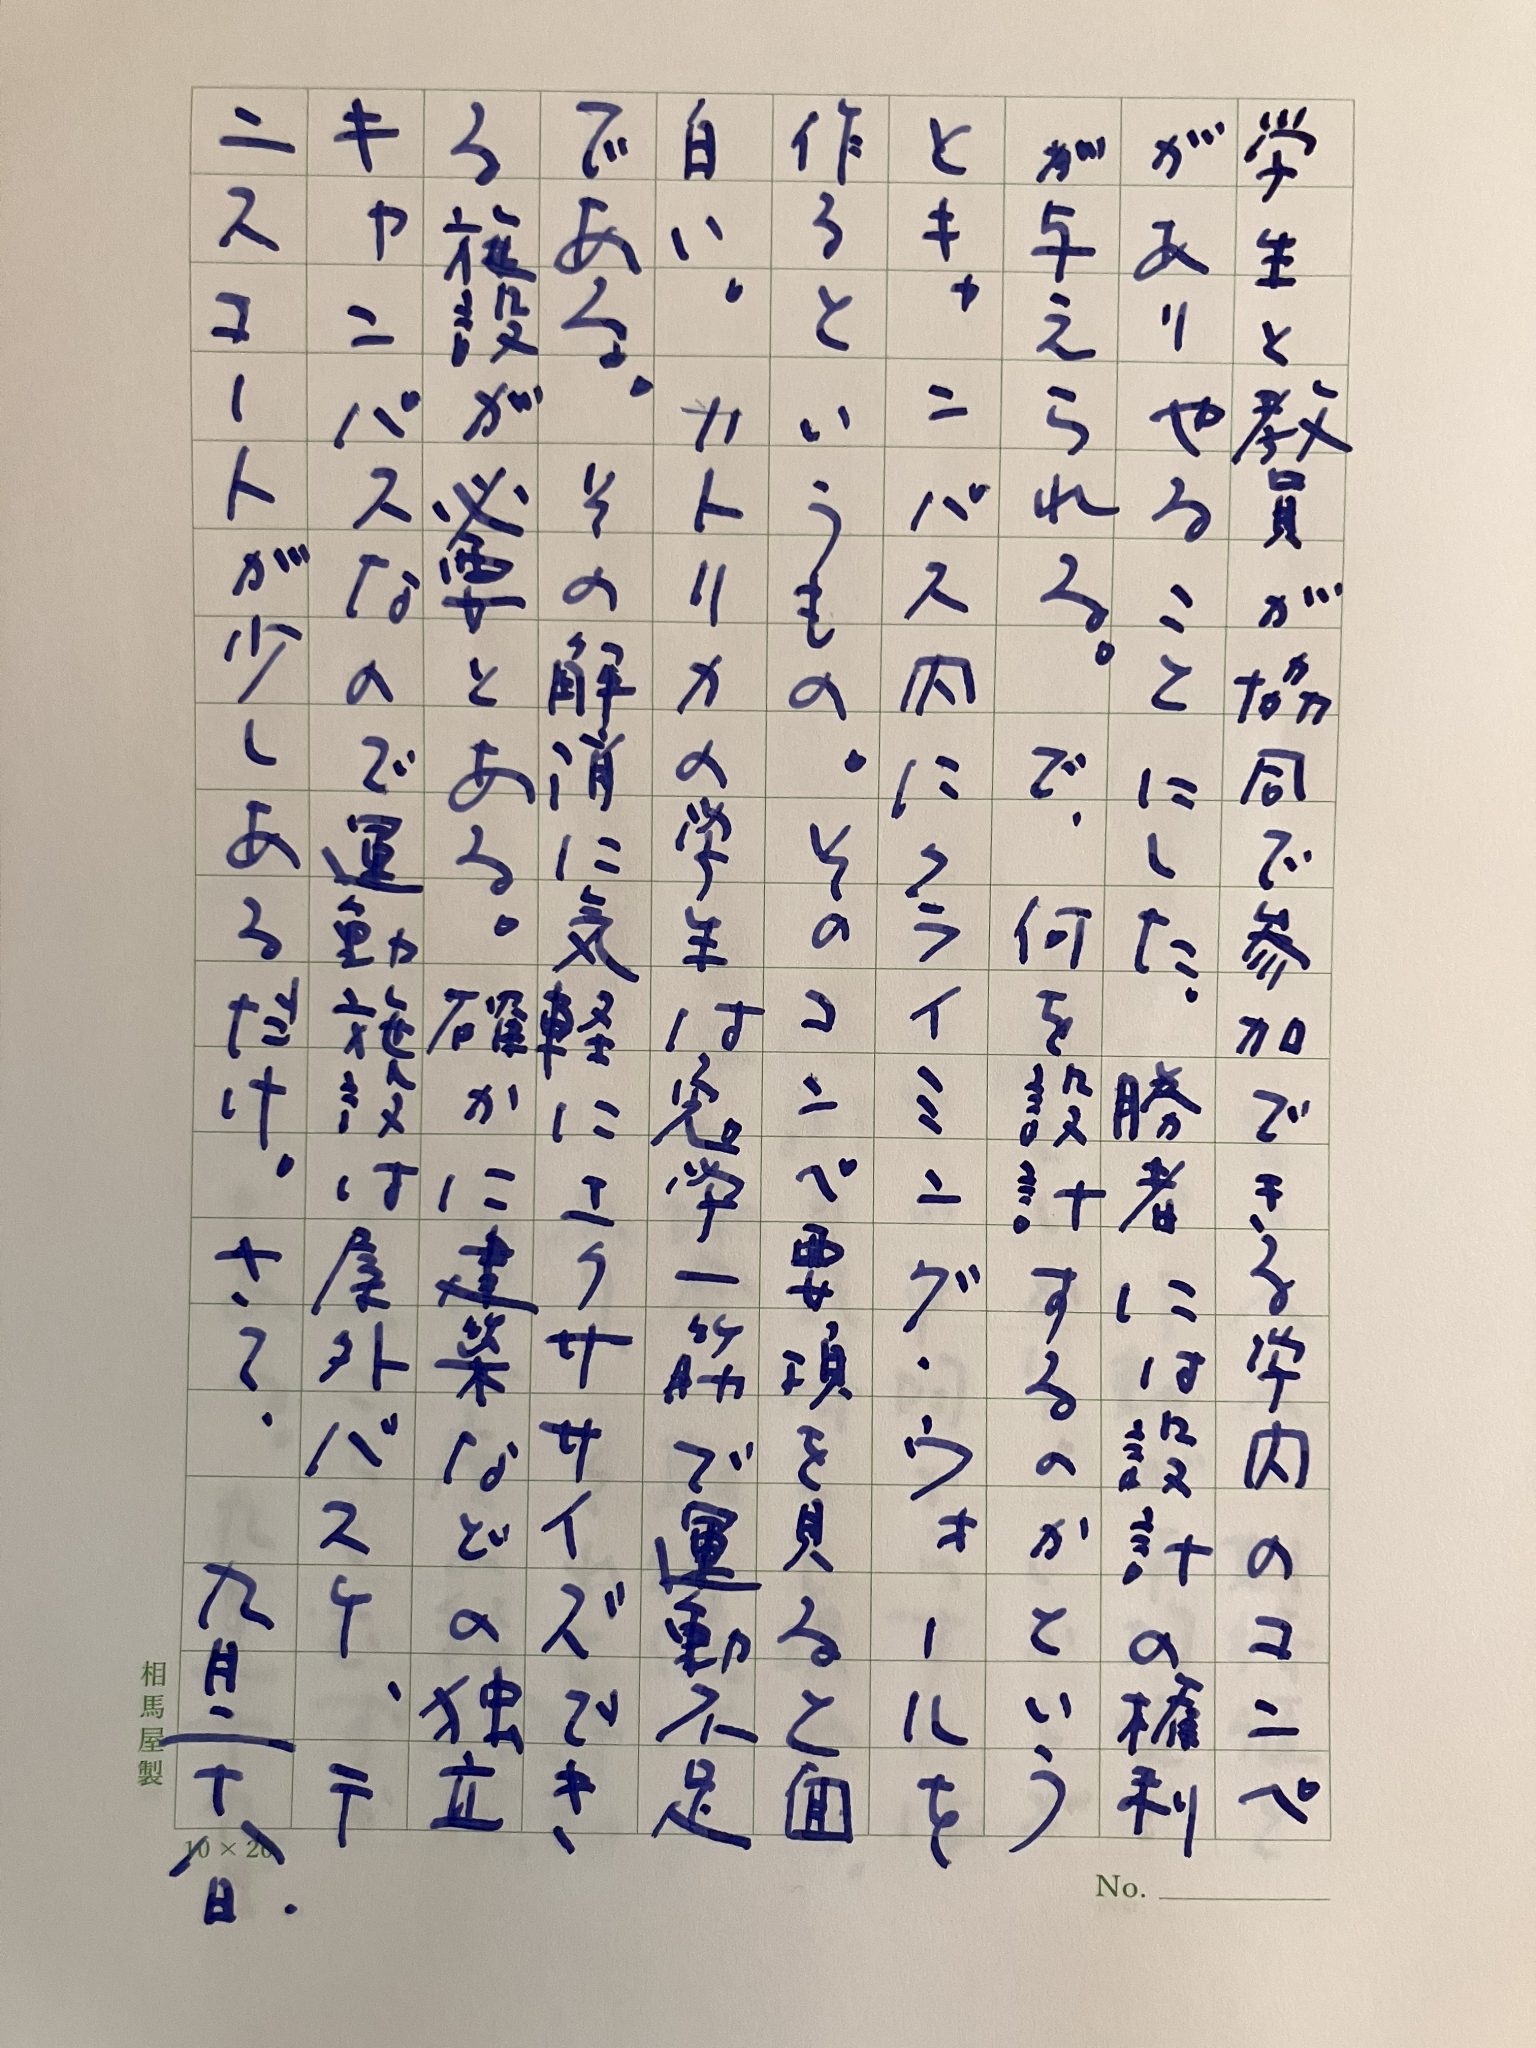 学生と教員が協同で参加できる学内のコンペ
がありやることにした。勝者には設計の権利
が与えられる。で、何を設計するのかという
とキャンバス内にクライミング・ウォールを
作ろというもの。そのコンペ要項を見ると面
白い。カトリカの学生は勉学一筋で運動不足
である。その解消に気軽にエクササイズでき
る施設が必要とある。確かに建築などの独立
キャンパスなので運動施設は屋外バスケ、テ
ニスコートが少しあるだけ。さて、
九月二十八日.
相馬屋製
10×20
No.